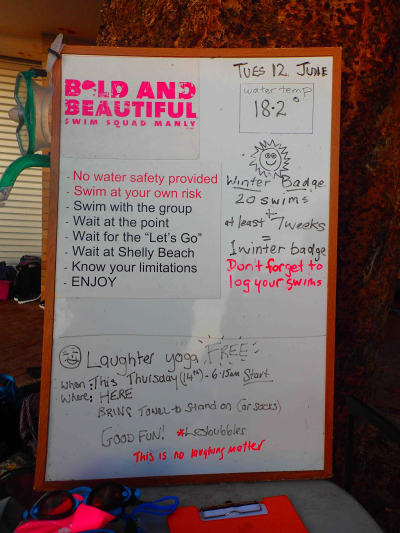 BOLD AND
BEAUTIFUL
SWIM SQUAD MANLY
- No water safety provided
- Swim at your own risk
- Swim with the group
- Wait at the point
- Wait for the "Let's Go"
- Wait at Shelly Beach
- Know your limitations
- ENJOY
TUES 12 JUNE
water temp
18.2°
Winter Badge
20 swims
+
at least 7 weeks
=
1 winter badge
Don't forget to
log your swims
Laughter yoga FREE
When: This Thursday (14th) - 6.15am Start
Where: HERE
BRING TOWEL to Stand on (or socks)
GOOD FUN!
This is no laughing matter